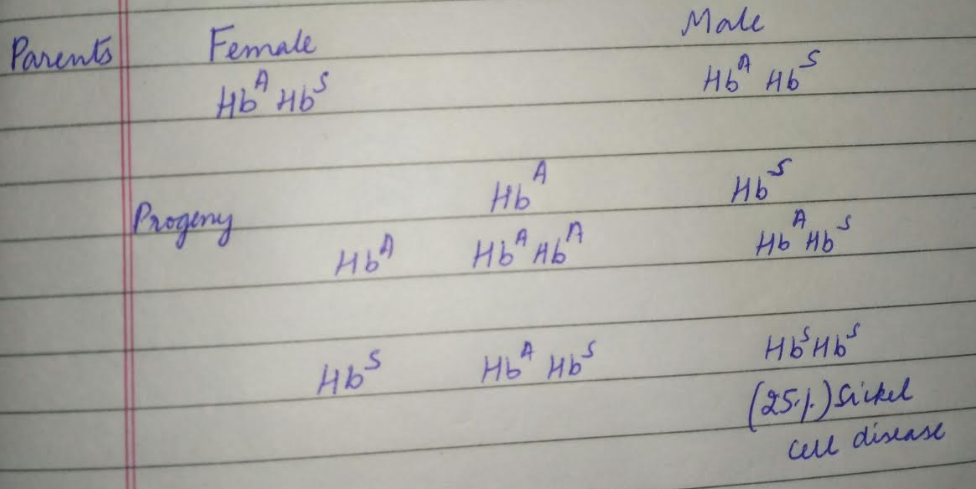 Parents Female Male
Hb^A Hb^S Hb^A Hb^S
Hb^A Hb^S
Progeny
Hb^A Hb^A Hb^A Hb^A Hb^S
Hb^S Hb^A Hb^S Hb^S Hb^S
(25%) Sickel
cell disease